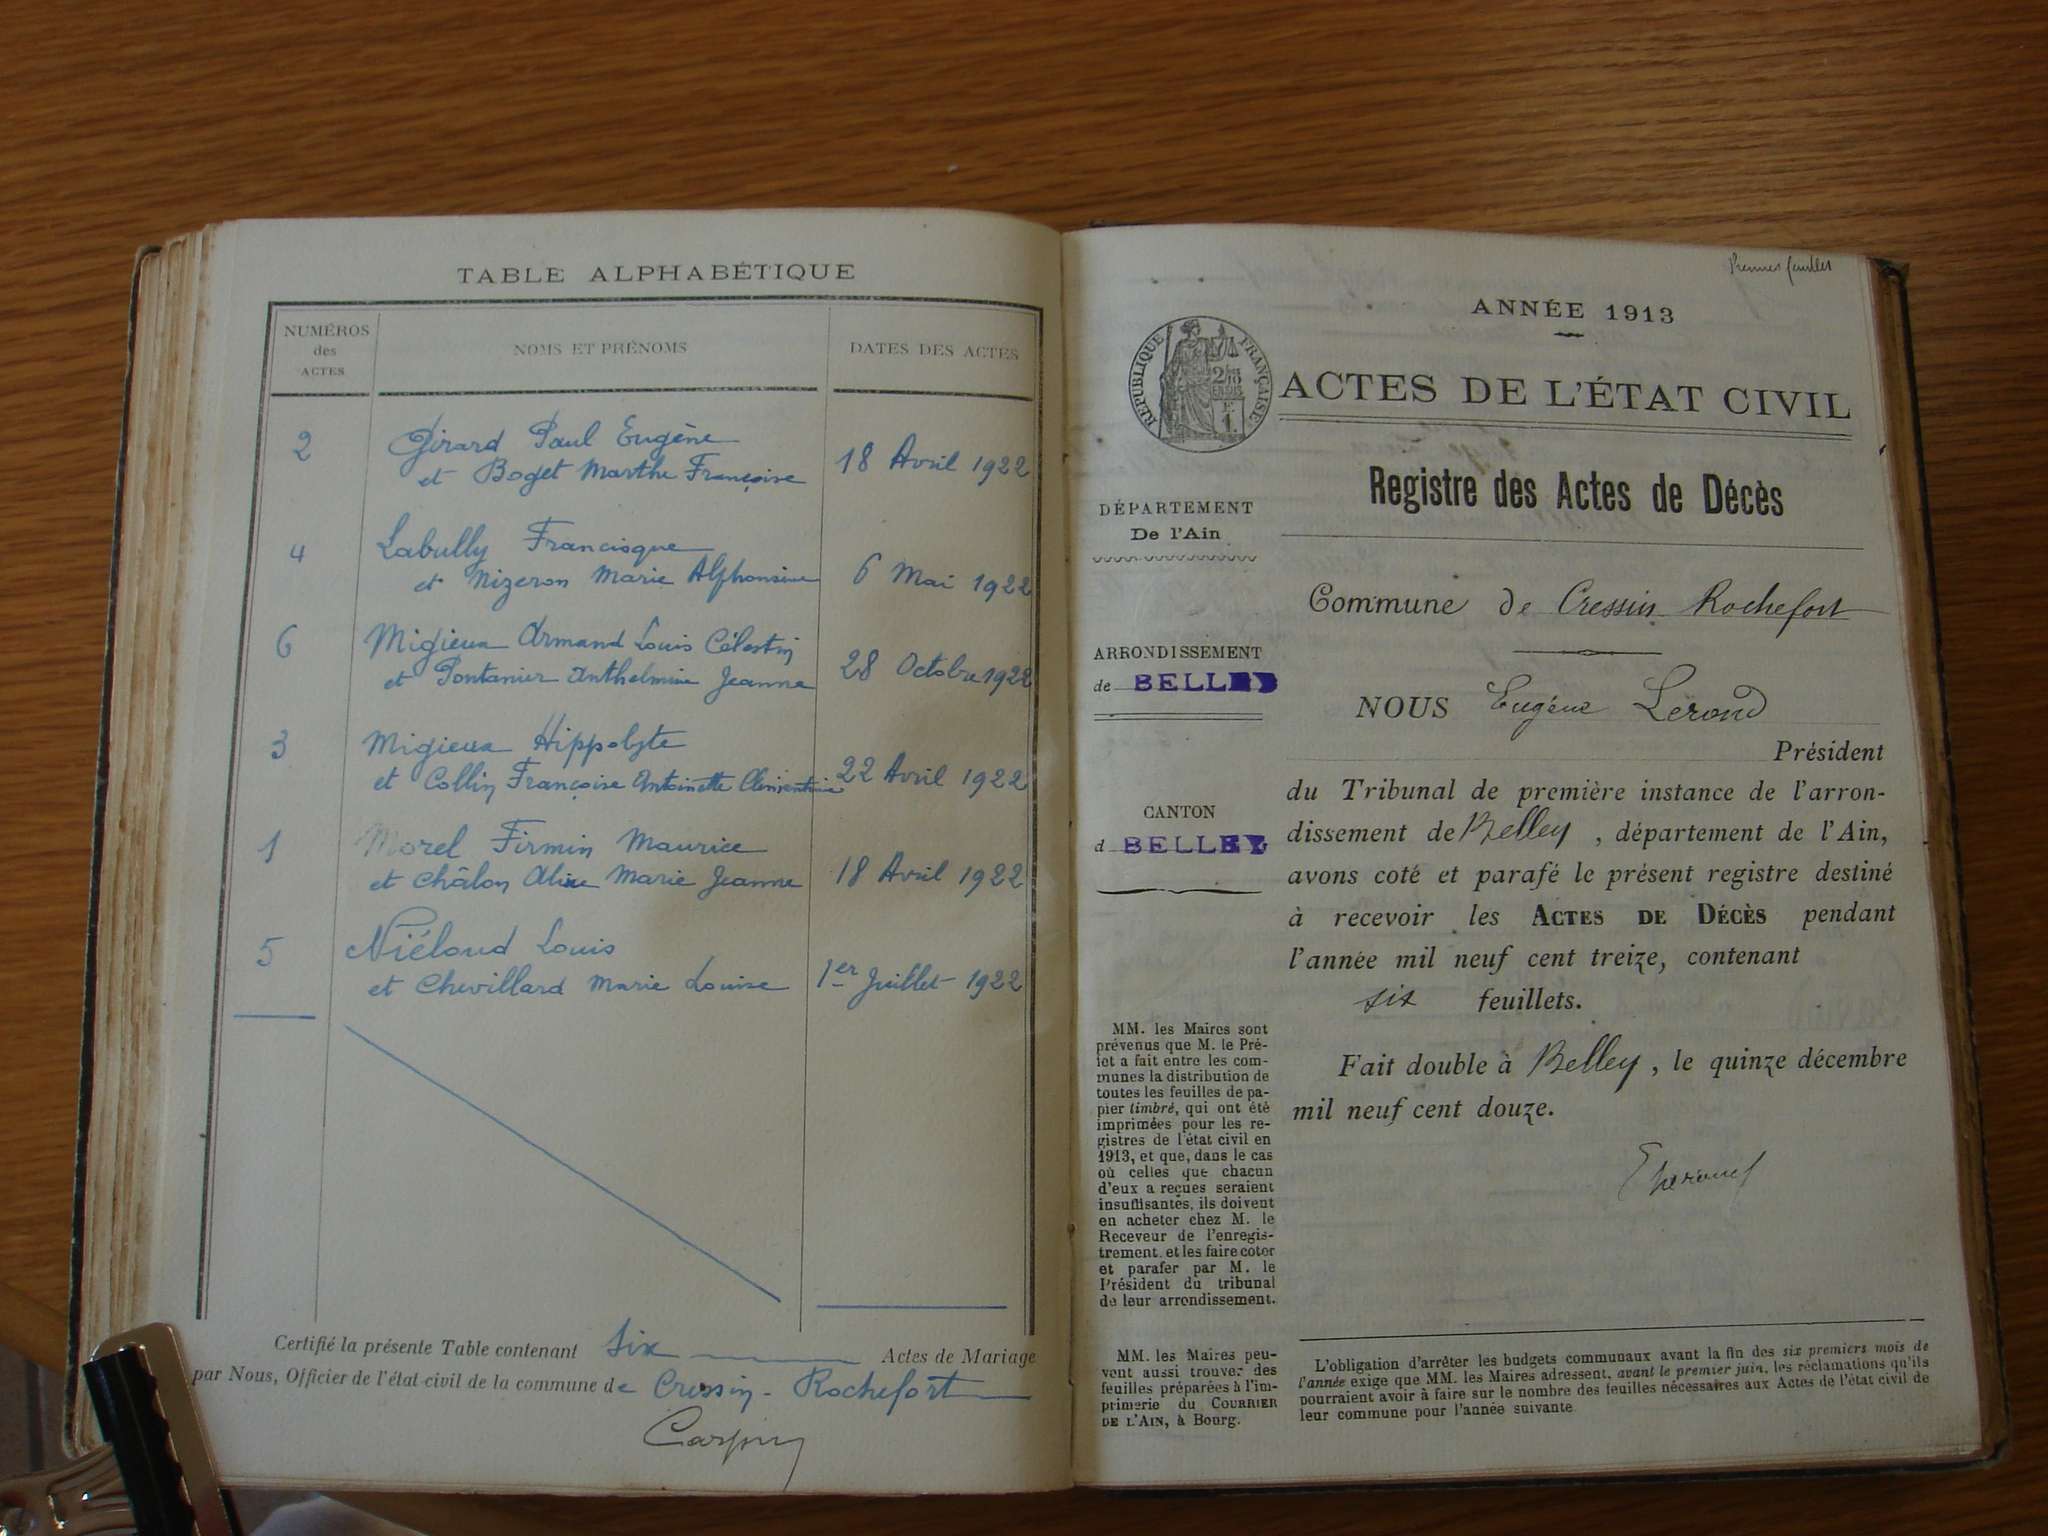 TABLE ALPHABÉTIQUE
NUMÉROS
des
ACTES
NOMS ET PRÉNOMS
DATES DES ACTES
2 Girard Paul Eugène
et Boget Marthe Françoise 18 Avril 1922
4 Labully Francisque
et Nizeron Marie Alphonsine 6 Mai 1922
6 Migieux Armand Louis Célestin
et Pontanier Anthelmine Jeanne 28 Octobre 1922
3 Migieux Hippolyte
et Collin Françoise Antoinette Clémentine 22 Avril 1922
1 Morel Firmin Maurice
et Châlon Aline Marie Jeanne 18 Avril 1922
5 Niéloud Louis
et Chevillard Marie Louise 1er Juillet 1922
Certifié la présente Table contenant six Actes de Mariage
par Nous, Officier de l'état-civil de la commune de Cressin-Rochefort
Premier feuillet
ANNÉE 1913
RÉPUBLIQUE FRANÇAISE
ACTES DE L'ÉTAT CIVIL
Registre des Actes de Décès
DÉPARTEMENT
De l'Ain
ARRONDISSEMENT
de BELLEY
CANTON
d BELLEY
MM. les Maires sont
prévenus que M. le Pré-
fet a fait entre les com-
munes la distribution de
toutes les feuilles de pa-
pier timbré, qui ont été
imprimées pour les re-
gistres de l'état civil en
1913, et que, dans le cas
où celles que chacun
d'eux a reçues seraient
insuffisantes, ils doivent
en acheter chez M. le
Receveur de l'enregis-
trement, et les faire coter
et parafer par M. le
Président du tribunal
de leur arrondissement.
MM. les Maires peu-
vent aussi trouver des
feuilles préparées à l'im-
primerie du COURRIER
DE L'AIN, à Bourg.
Commune de Cressin Rochefort
NOUS Eugène Lerond
Président
du Tribunal de première instance de l'arron-
dissement de Belley, département de l'Ain,
avons coté et parafé le présent registre destiné
à recevoir les ACTES DE DÉCÈS pendant
l'année mil neuf cent treize, contenant
six feuillets.
Fait double à Belley, le quinze décembre
mil neuf cent douze.
L'obligation d'arrêter les budgets communaux avant la fin des six premiers mois de
l'année exige que MM. les Maires adressent, avant le premier juin, les réclamations qu'ils
pourraient avoir à faire sur le nombre des feuilles nécessaires aux Actes de l'état civil de
leur commune pour l'année suivante